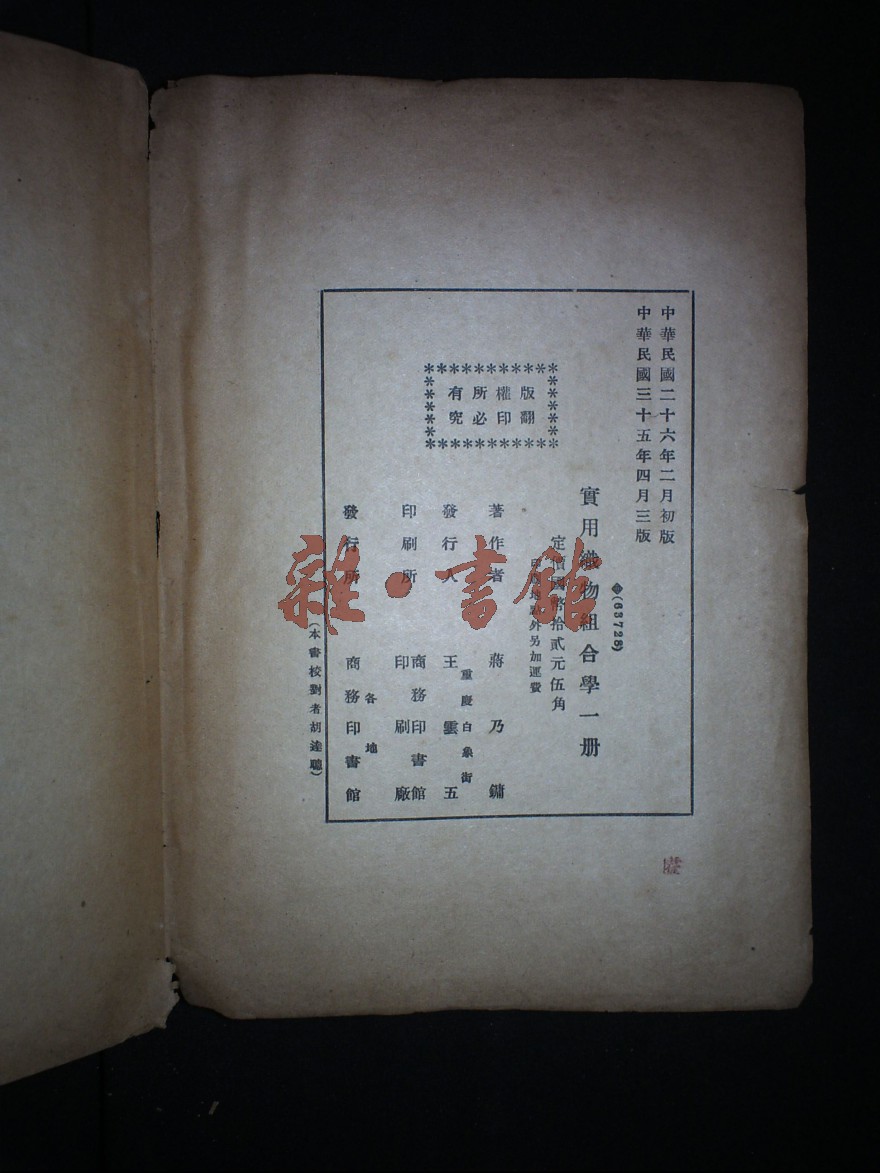 中華民國二十六年二月初版
中華民國三十五年四月三版
◈(63728)
實用織物組合學一册
定價國幣拾貳元伍角
印刷地點外另加運費
版權所有
翻印必究
著作者 蔣乃鏞
重慶白象街
發行人 王雲五
印刷所 商務印書館
印刷廠
各地
發行所 商務印書館
(本書校對者胡達聰)
雜·書館